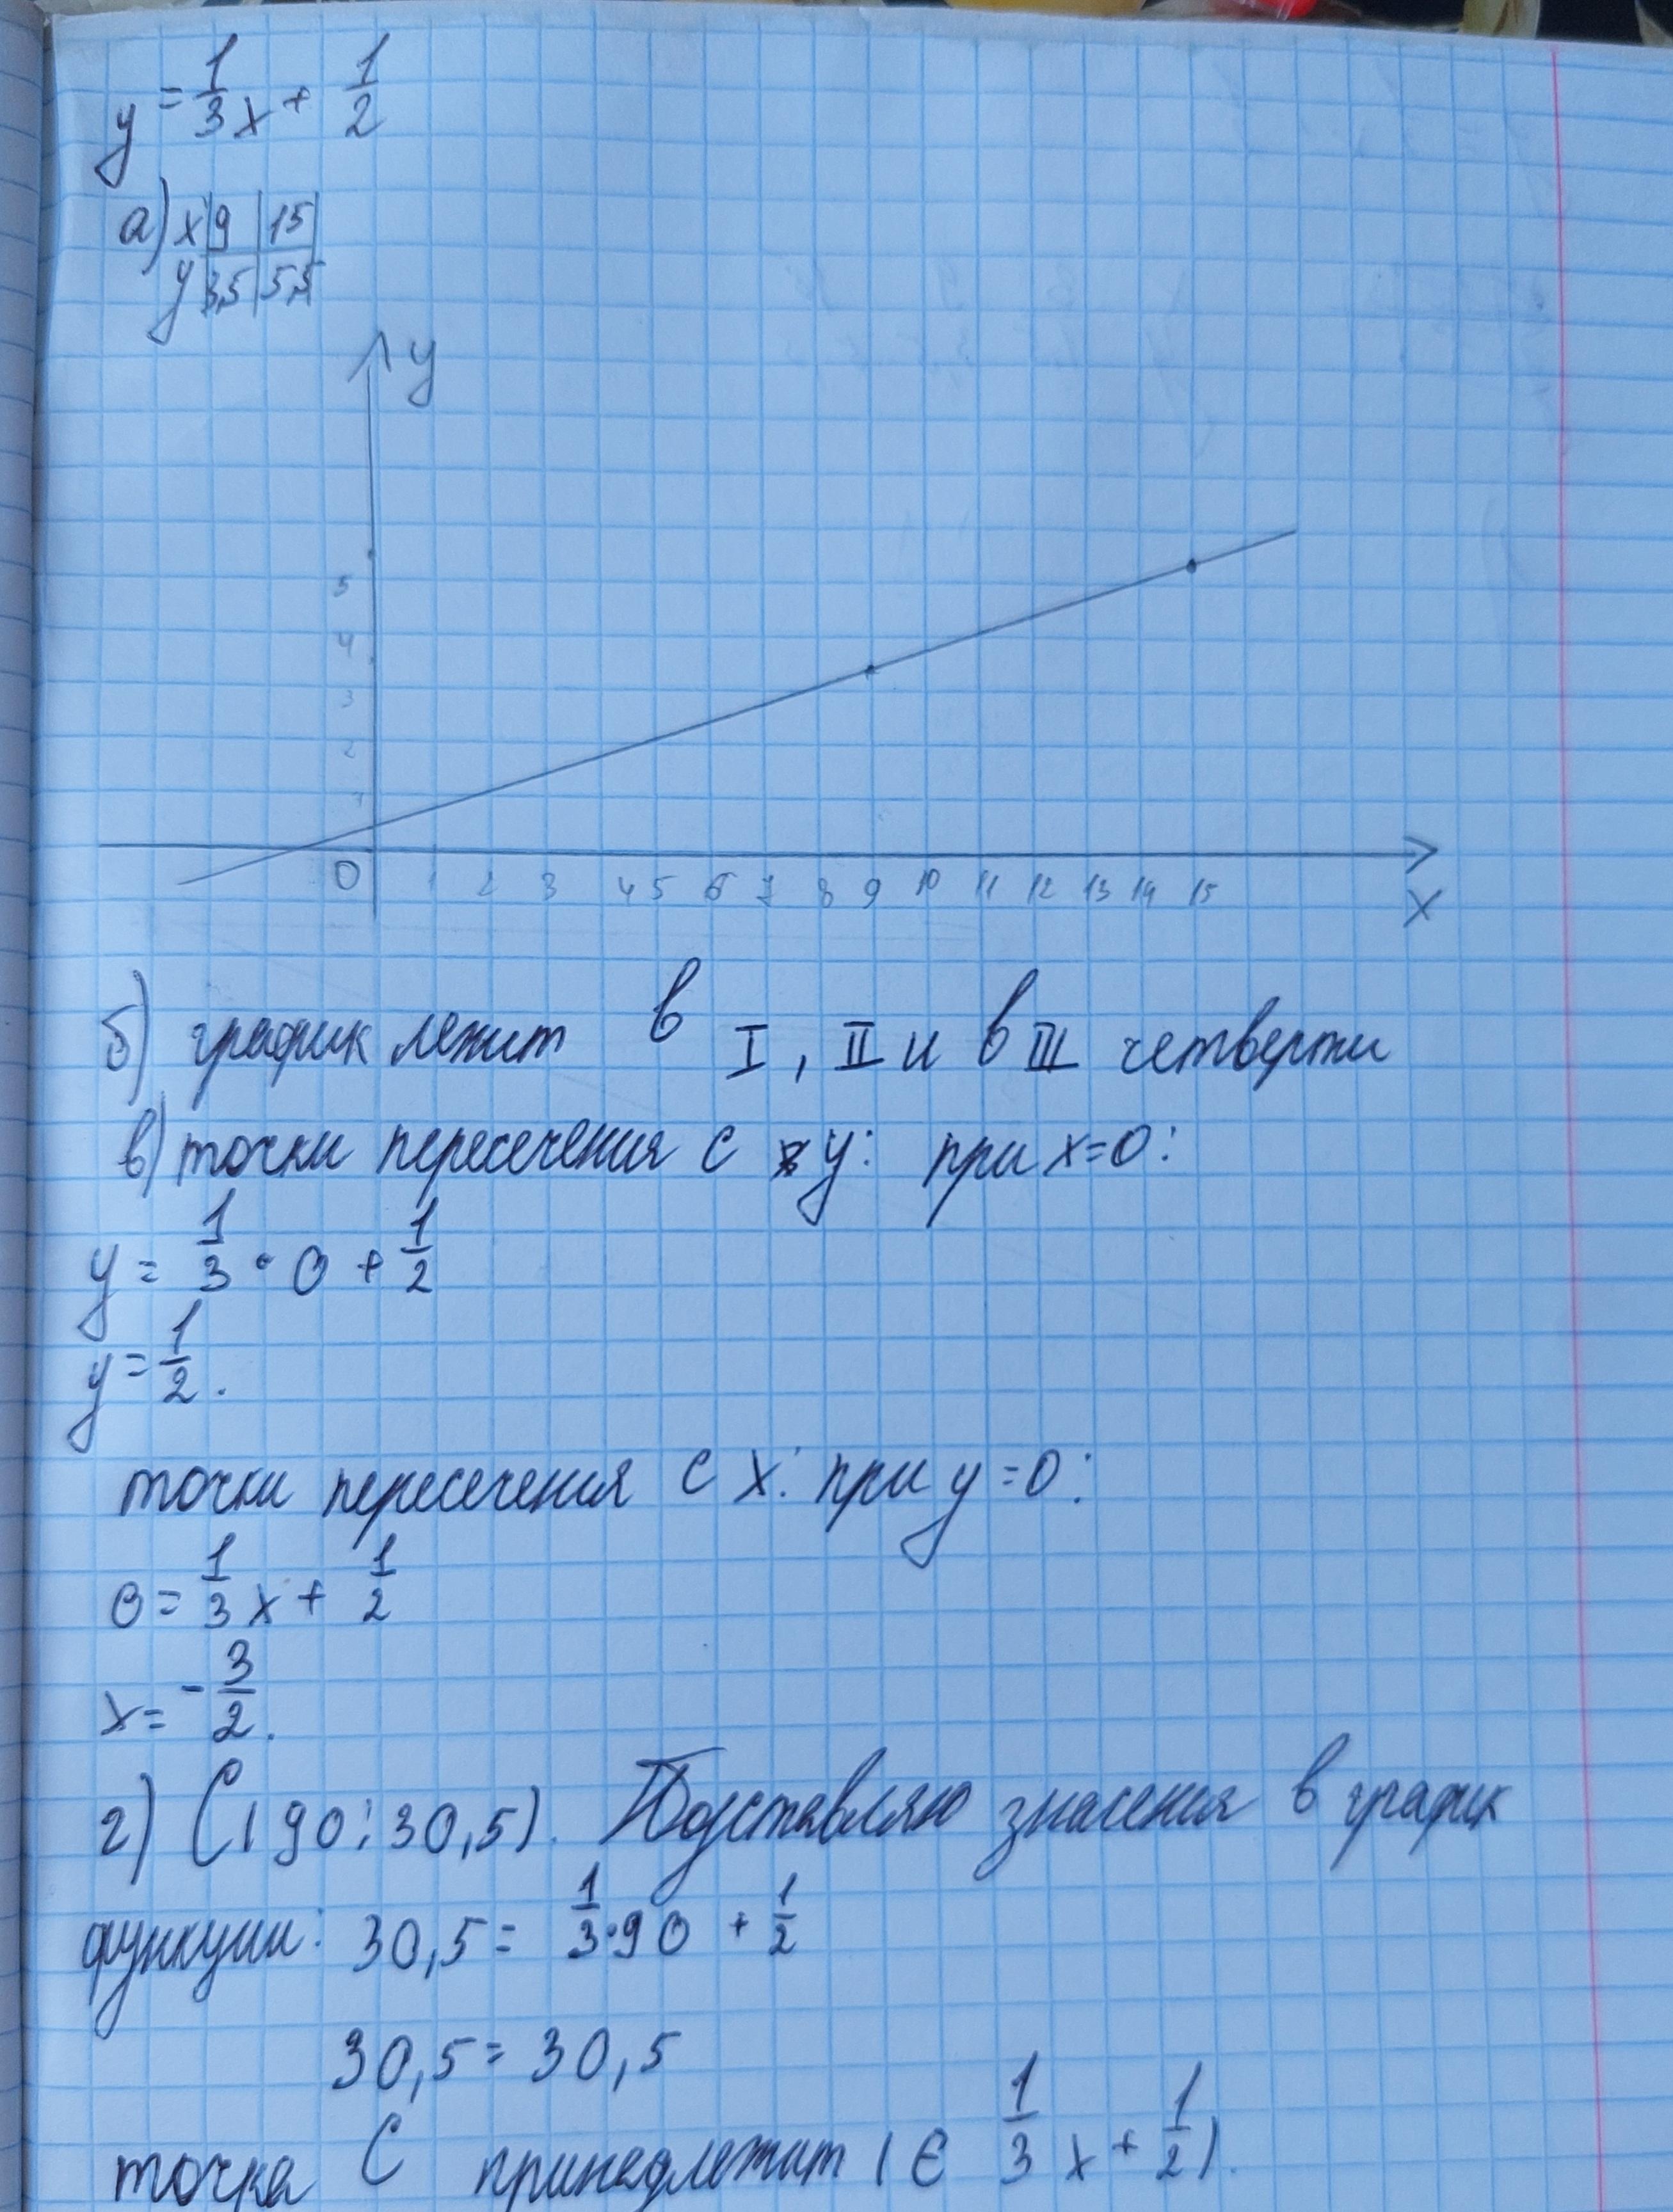 y = 1/3 x + 1/2
а) x | 9 | 15
y | 3,5 | 5,5
y
5
4
3
2
1
0 1 2 3 4 5 6 7 8 9 10 11 12 13 14 15
x
б) график лежит в I, II и в III четверти
в) точки пересечения с y: при x=0:
y = 1/3 · 0 + 1/2
y = 1/2.
точки пересечения с x: при y=0:
0 = 1/3 x + 1/2
x = - 3/2.
г) C(90; 30,5). Подставляю значения в график
функции: 30,5 = 1/3 · 90 + 1/2
30,5 = 30,5
точка C принадлежит (∈ 1/3 x + 1/2).